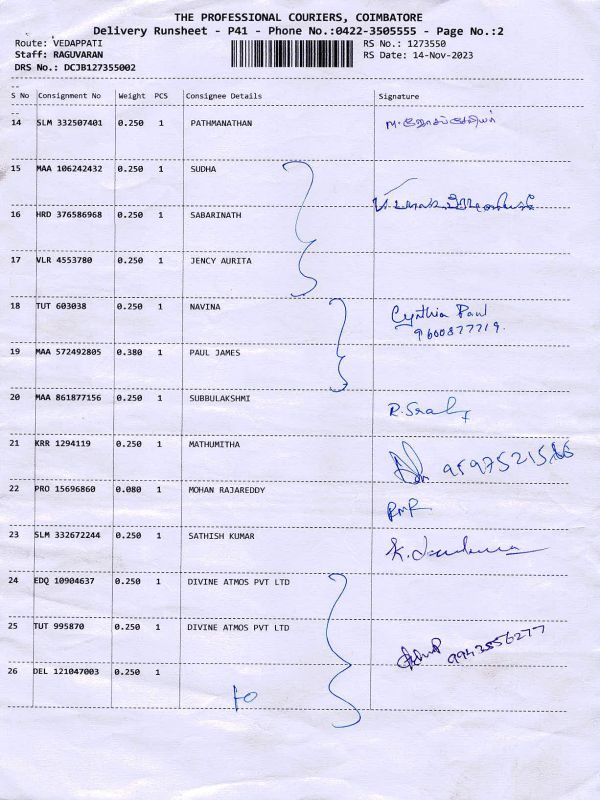 THE PROFESSIONAL COURIERS, COIMBATORE
Delivery Runsheet - P41 - Phone No.:0422-3505555 - Page No.:2
Route: VEDAPPATI RS No.: 1273550
Staff: RAGUVARAN RS Date: 14-Nov-2023
DRS No.: DCJB127355002
S No Consignment No Weight PCS Consignee Details Signature
14 SLM 332507401 0.250 1 PATHMANATHAN
15 MAA 106242432 0.250 1 SUDHA
16 HRD 376586968 0.250 1 SABARINATH
17 VLR 4553780 0.250 1 JENCY AURITA
18 TUT 603038 0.250 1 NAVINA Cynthia Paul
9600877719.
19 MAA 572492805 0.380 1 PAUL JAMES
20 MAA 861877156 0.250 1 SUBBULAKSHMI
21 KRR 1294119 0.250 1 MATHUMITHA
22 PRO 15696860 0.080 1 MOHAN RAJAREDDY PMR
23 SLM 332672244 0.250 1 SATHISH KUMAR
24 EDQ 10904637 0.250 1 DIVINE ATMOS PVT LTD
25 TUT 995870 0.250 1 DIVINE ATMOS PVT LTD 9943556277
26 DEL 121047003 0.250 1
to